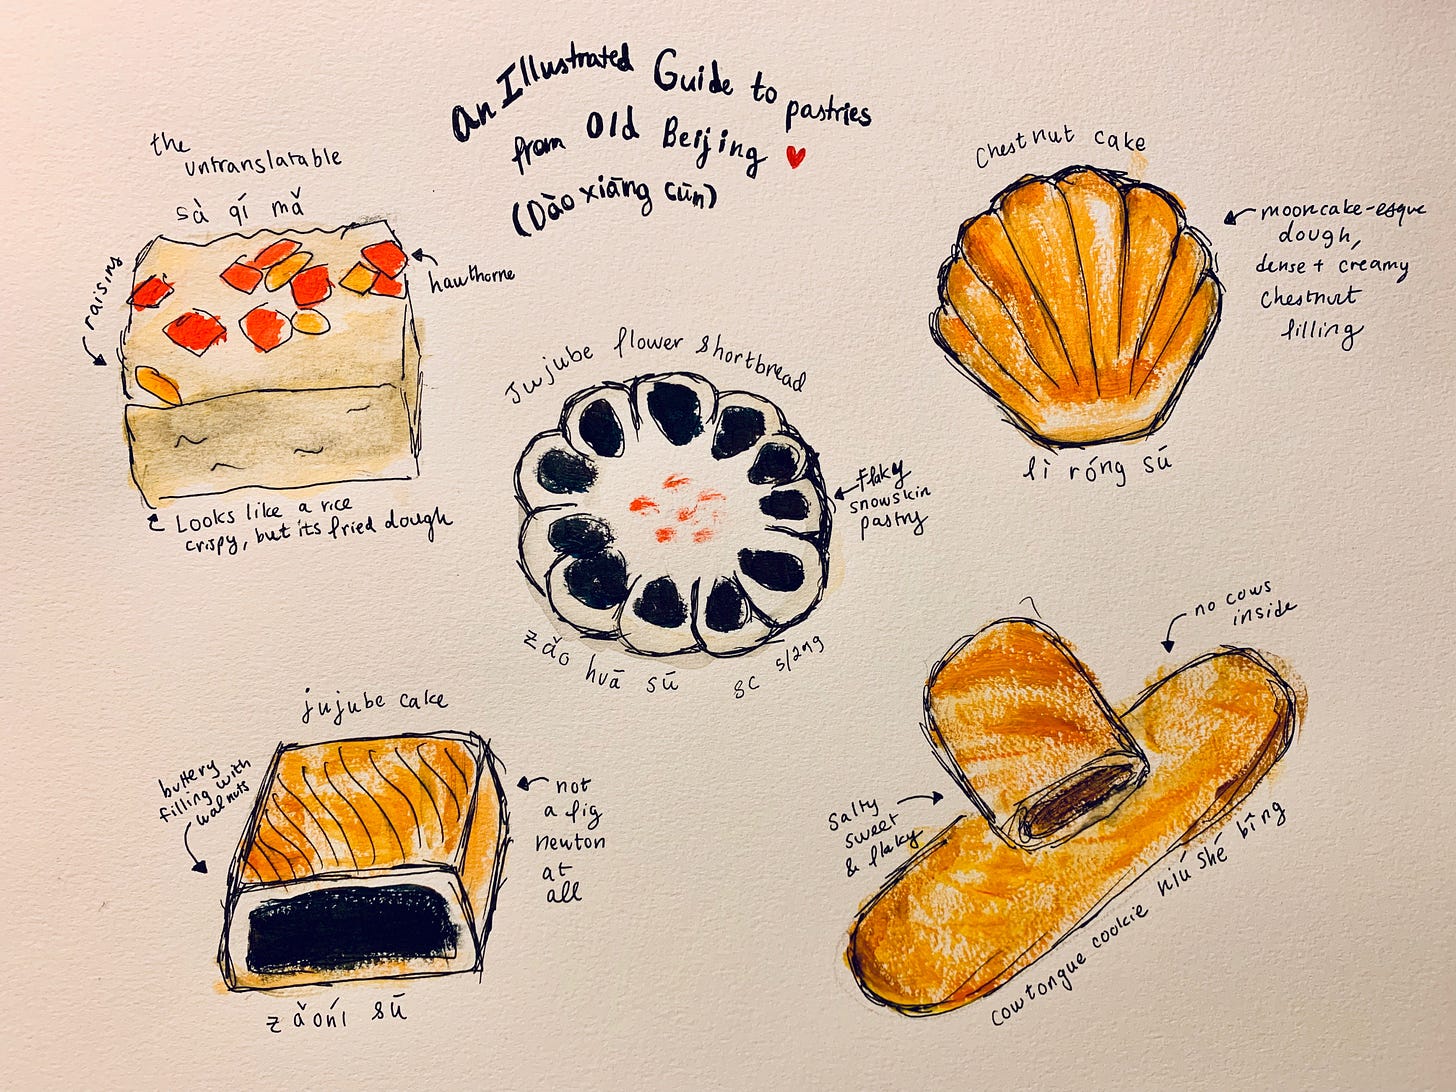 An Illustrated Guide to pastries
from Old Beijing
(Dào xiāng cūn)
the
untranslatable
sà qí mǎ
raisins
hawthorne
Looks like a rice
crispy, but its fried dough
Chestnut cake
mooncake-esque
dough,
dense + creamy
chestnut
filling
lì róng sū
Jujube flower shortbread
flaky
snowskin
pastry
zǎo huā sū
sc 5/2019
jujube cake
buttery
filling with
walnuts
not
a fig
newton
at
all
zǎoní sū
no cows
inside
Salty
sweet
& flaky
cowtongue cookie niú shé bǐng